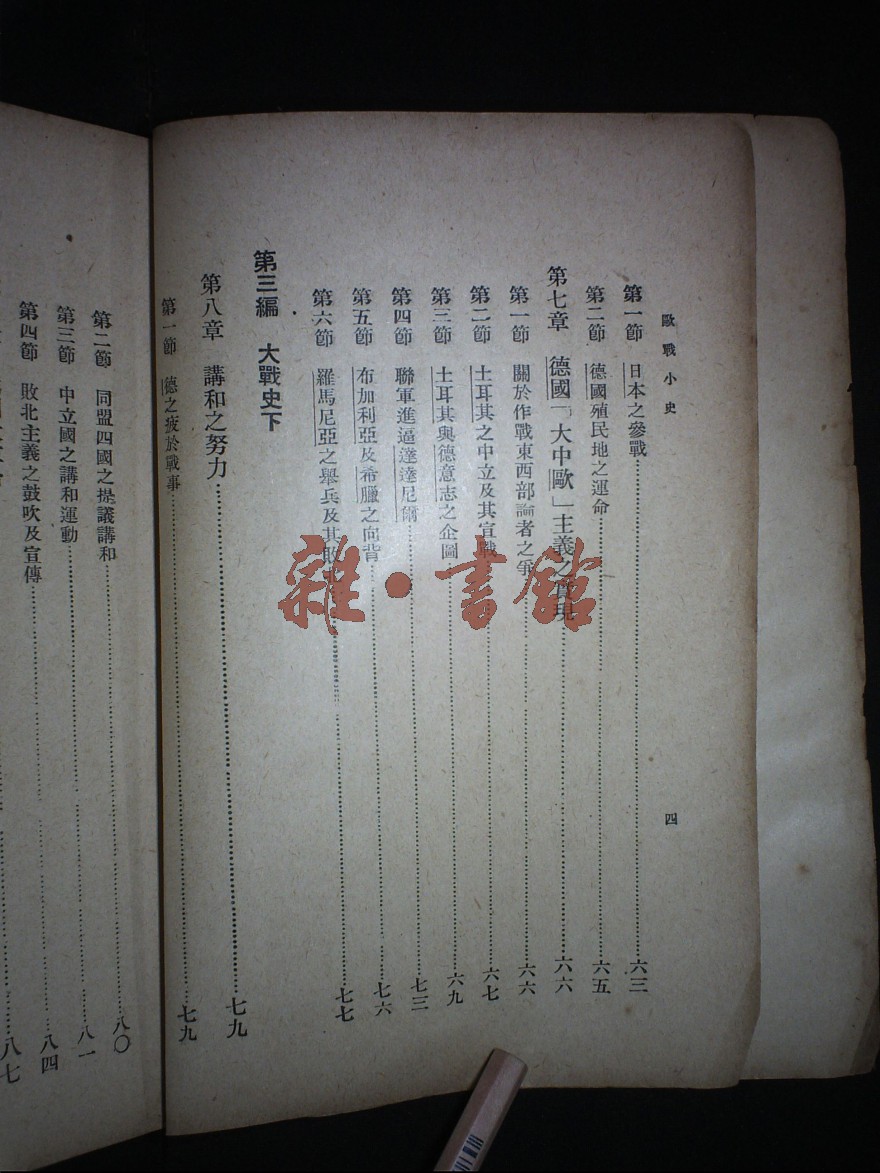 歐戰小史
四
第一節 日本之參戰……六三
第二節 德國殖民地之運命……六五
第七章 德國「大中歐」主義之實現……六六
第一節 關於作戰東西部論者之爭……六六
第二節 土耳其之中立及其宣戰……六七
第三節 土耳其與德意志之企圖……六九
第四節 聯軍進逼達達尼爾……七三
第五節 布加利亞及希臘之向背……七六
第六節 羅馬尼亞之舉兵及其敗……七七
第三編 大戰史下
第八章 講和之努力……七九
第一節 德之疲於戰事……七九
第二節 同盟四國之提議講和……八〇
第三節 中立國之講和運動……八一
第四節 敗北主義之鼓吹及宣傳……八四
八七
雜·書館